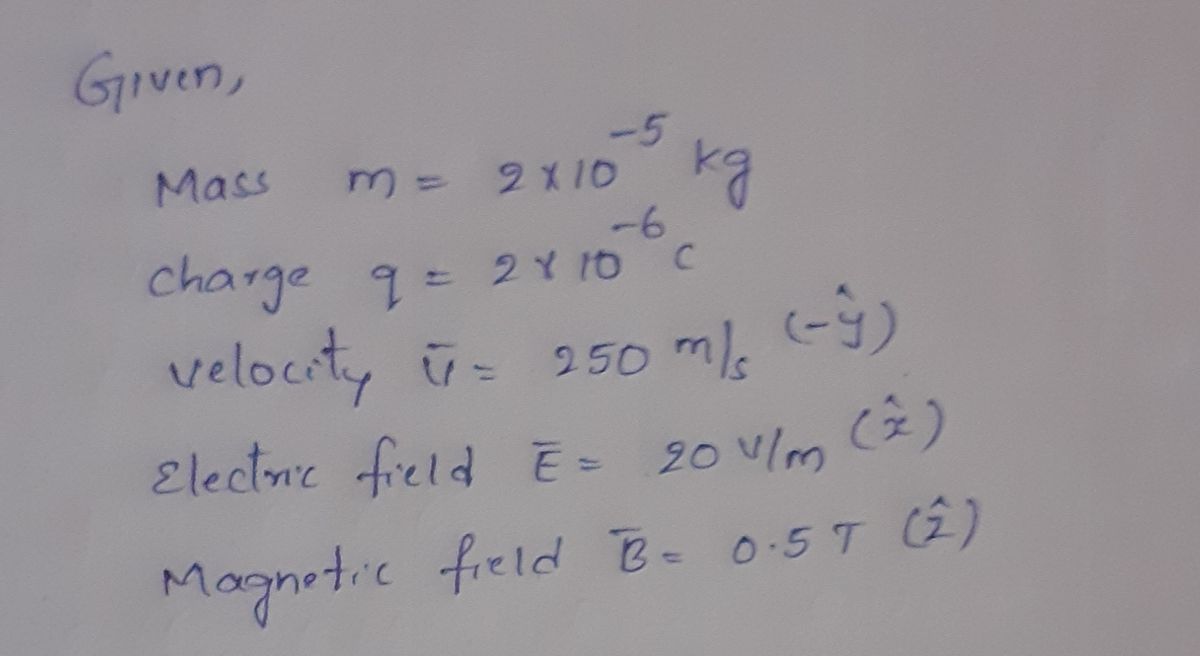 Given,
Mass m = 2 x 10⁻⁵ kg
charge q = 2 x 10⁻⁶ c
velocity v̄ = 250 m/s (-ŷ)
Electric field Ē = 20 V/m (x̂)
Magnetic field B̄ = 0.5 T (ẑ)